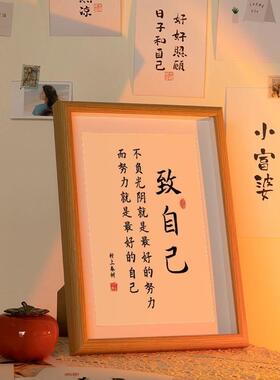 致自己
不负光阴就是最好的努力
而努力就是最好的自己
村上春树
好好照顾
日子和自己
小富婆